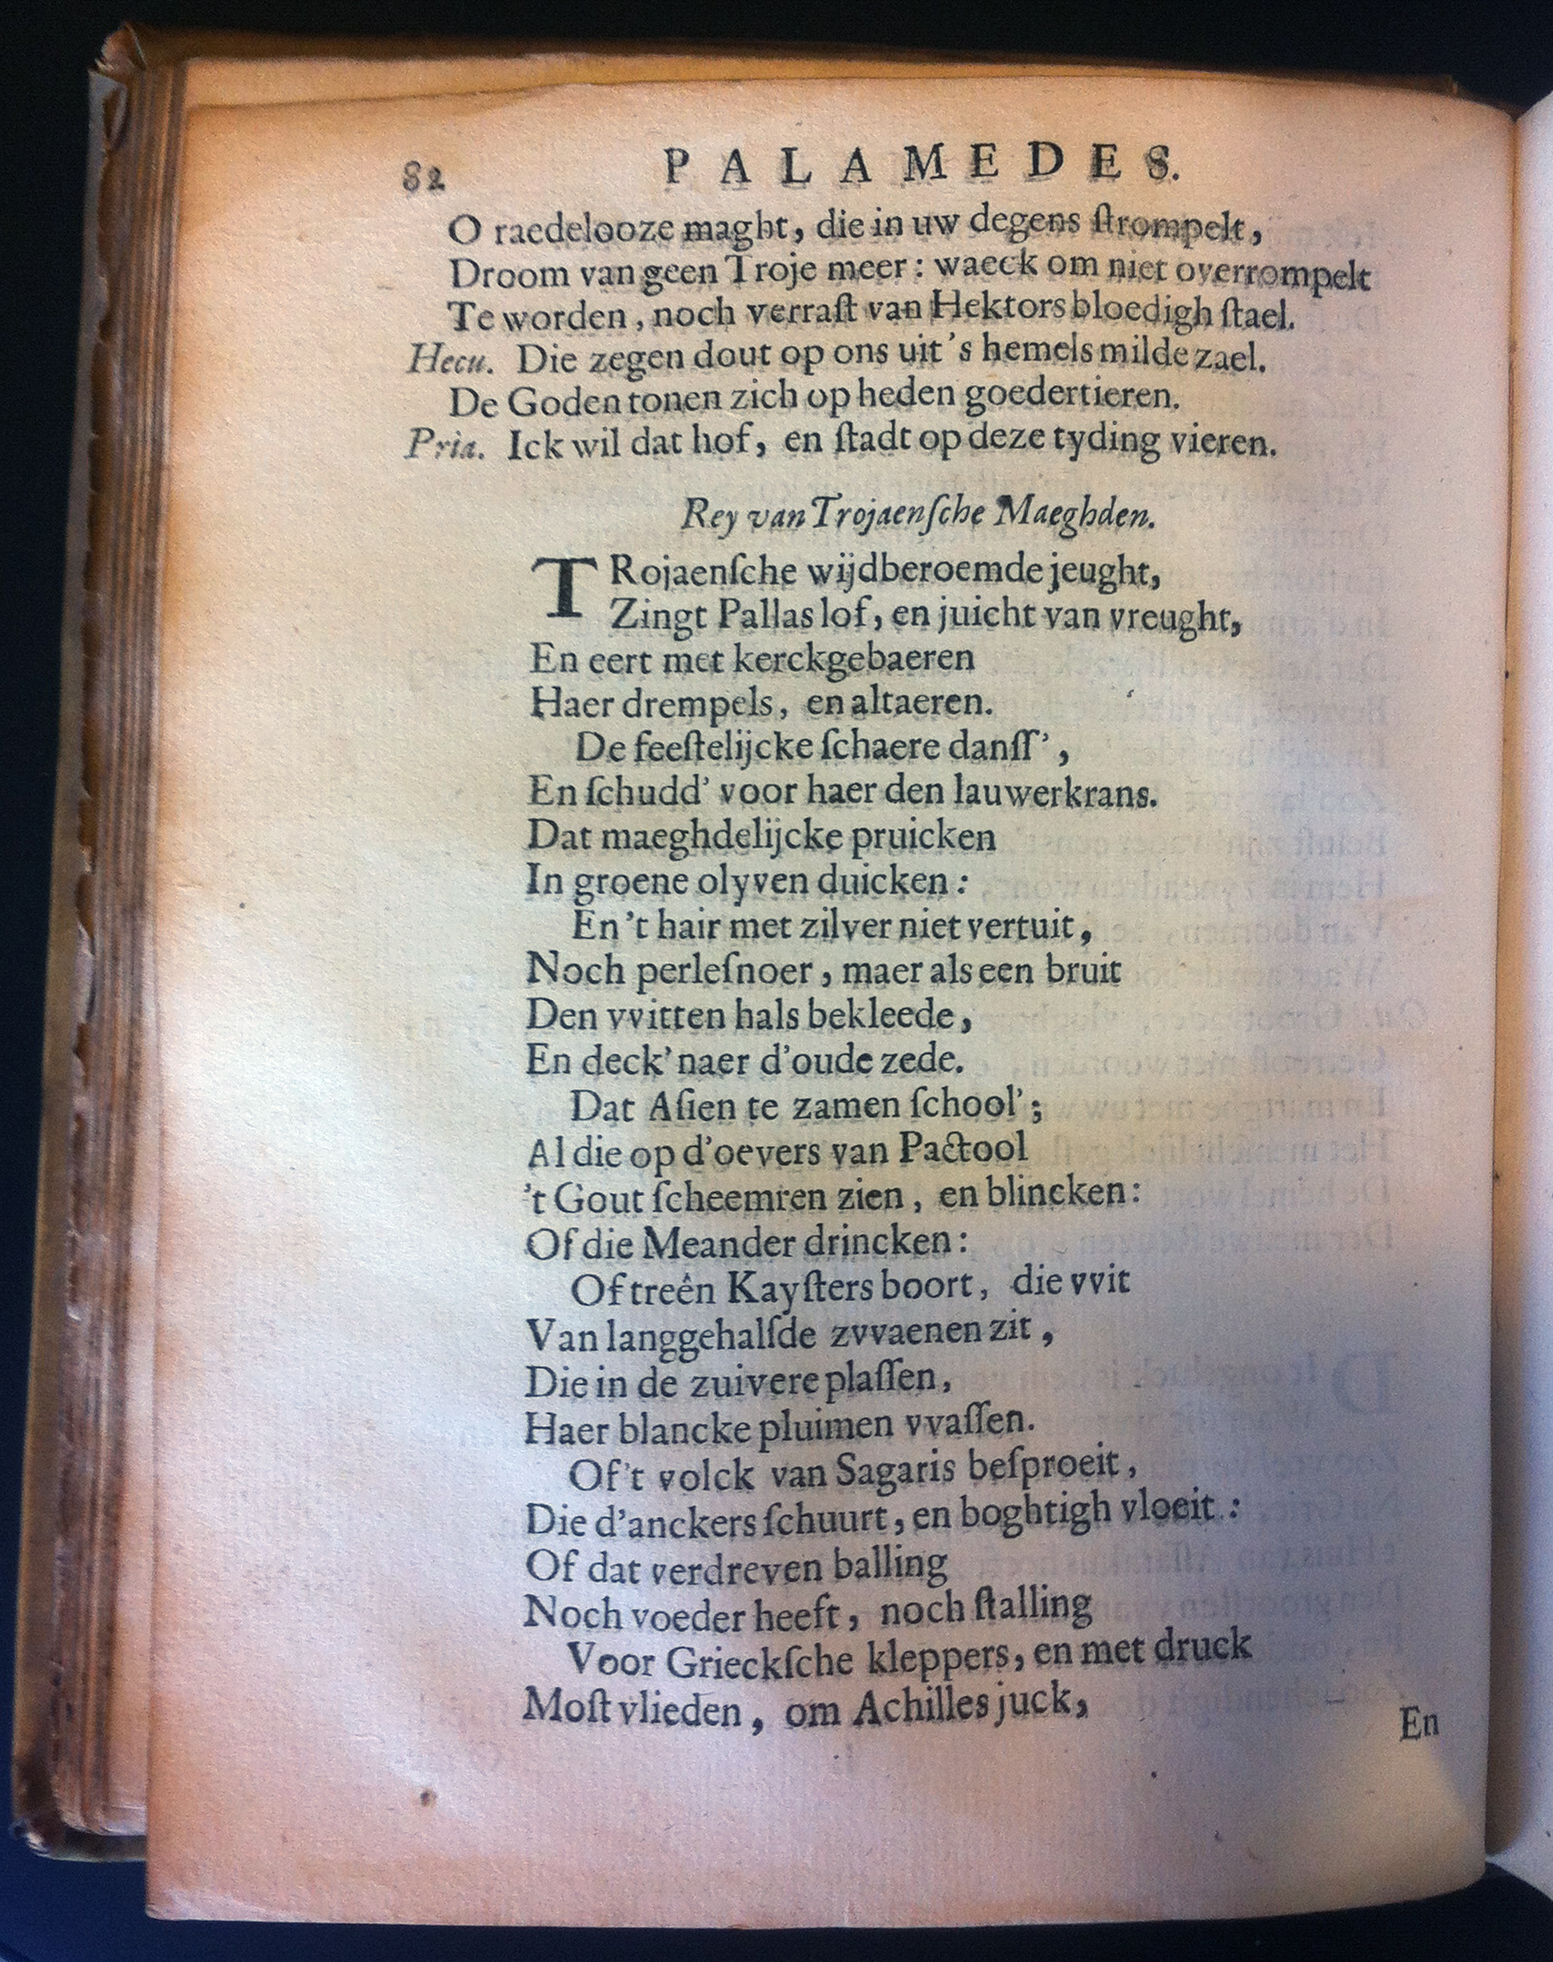 82 PALAMEDES.
O raedelooze maght, die in uw degens ſtrompelt,
Droom van geen Troje meer: waeck om niet overrompelt
Te worden, noch verraſt van Hektors bloedigh ſtael.
Hecu. Die zegen dout op ons uit 's hemels milde zael.
De Goden tonen zich op heden goedertieren.
Pria. Ick wil dat hof, en ſtadt op deze tyding vieren.
Rey van Trojaenſche Maeghden.
TRojaenſche wijdberoemde jeught,
Zingt Pallas lof, en juicht van vreught,
En eert met kerckgebaeren
Haer drempels, en altaeren.
De feeſtelijcke ſchaere danſſ',
En ſchudd' voor haer den lauwerkrans.
Dat maeghdelijcke pruicken
In groene olyven duicken:
En 't hair met zilver niet vertuit,
Noch perleſnoer, maer als een bruit
Den vvitten hals bekleede,
En deck' naer d'oude zede.
Dat Aſien te zamen ſchool';
Al die op d'oevers van Pactool
't Gout ſcheemren zien, en blincken:
Of die Meander drincken:
Of treên Kayſters boort, die vvit
Van langgehalſde zvvaenen zit,
Die in de zuivere plaſſen,
Haer blancke pluimen vvaſſen.
Of 't volck van Sagaris beſproeit,
Die d'anckers ſchuurt, en boghtigh vloeit:
Of dat verdreven balling
Noch voeder heeft, noch ſtalling
Voor Grieckſche kleppers, en met druck
Moſt vlieden, om Achilles juck,
En